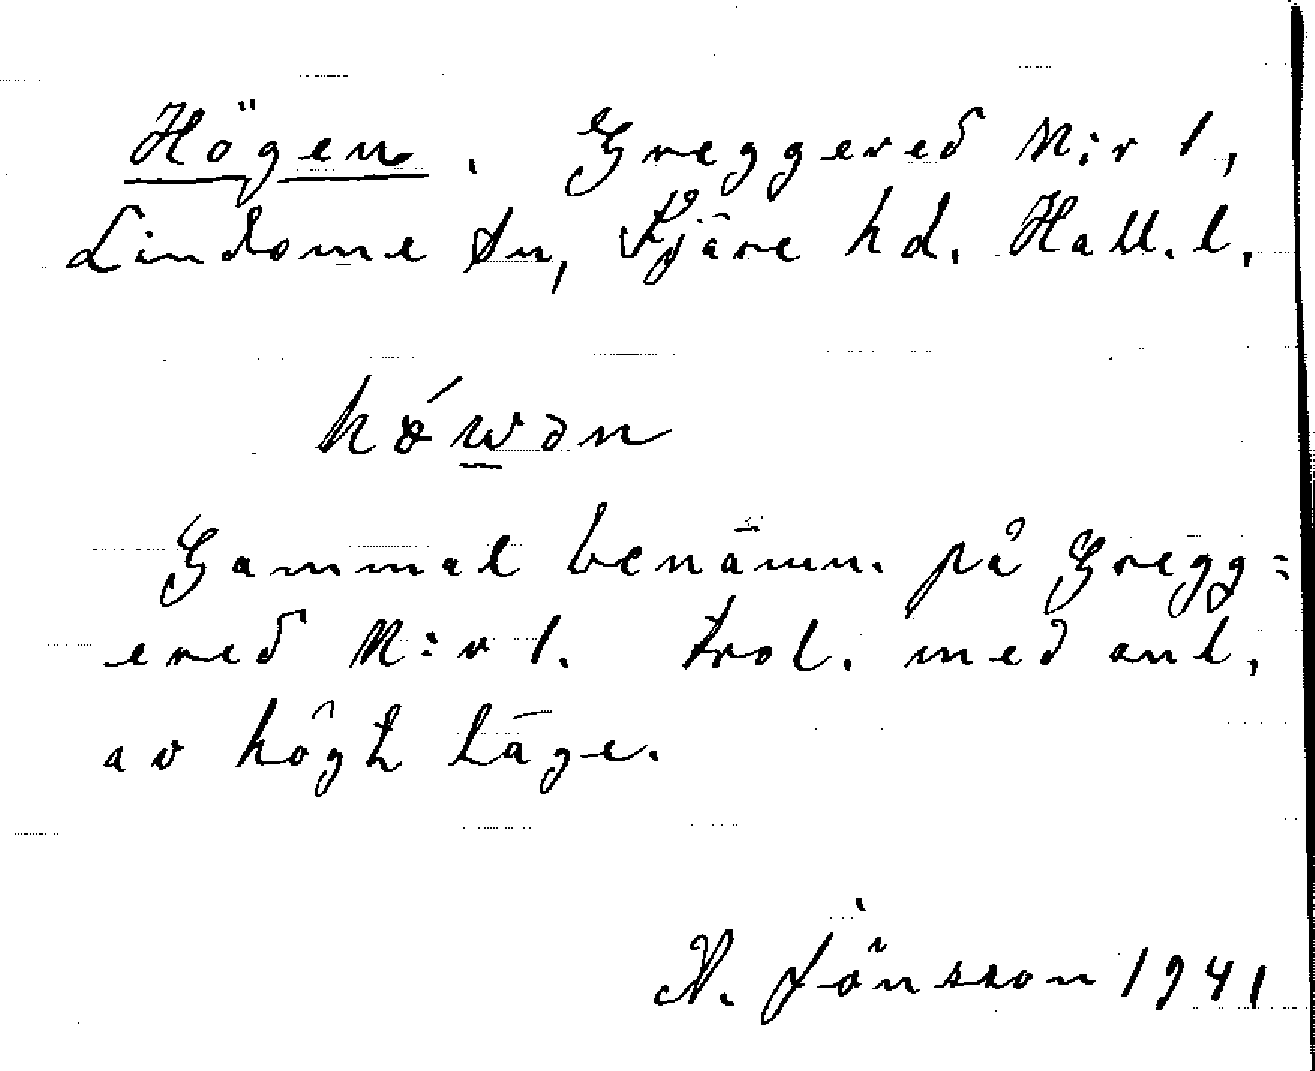 Högen. Greggered N:r 1,
Lindome sn, Fjäre hd. Hall. l.
hǿwən
Gammal benämn. på Gregg=
ered N:r 1. trol. med anl.
av högt läge.
N. Jönsson 1941